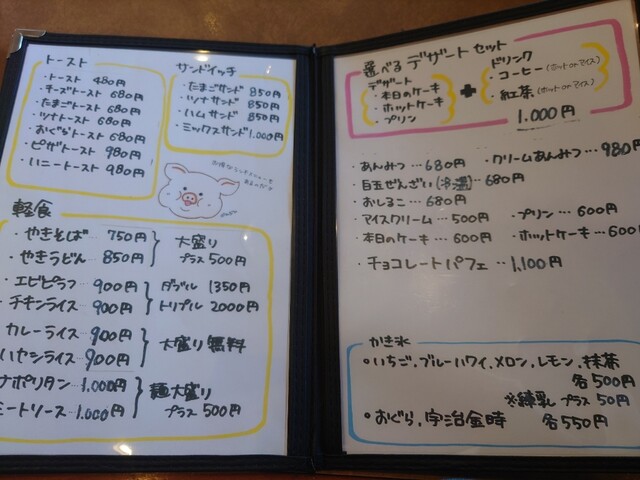 トースト
・トースト 480円
・チーズトースト 680円
・たまごトースト 680円
・ツナトースト 680円
・おぐらトースト 680円
・ピザトースト 980円
・ハニートースト 980円
サンドイッチ
・たまごサンド 850円
・ツナサンド 850円
・ハムサンド 850円
・ミックスサンド 1.000円
軽食
・やきそば 750円
・やきうどん 850円
大盛り
プラス 500円
・エビピラフ 900円
チキンライス 900円
ダブル 1350円
トリプル 2000円
カレーライス 900円
ハヤシライス 900円
大盛り無料
ナポリタン 1.000円
ミートソース 1.000円
麺大盛り
プラス 500円
選べるデザートセット
デザート
・本日のケーキ
・ホットケーキ
・プリン
+
ドリンク
・コーヒー(ホットorアイス)
・紅茶(ホットorアイス)
1.000円
・あんみつ…680円
・クリームあんみつ…980円
・白玉ぜんざい(冷温)…680円
・おしるこ…680円
・アイスクリーム…500円
・プリン…600円
・本日のケーキ…600円
・ホットケーキ…600円
・チョコレートパフェ…1,100円
かき氷
○いちご,ブルーハワイ,メロン,レモン,抹茶
各500円
※練乳プラス50円
○おぐら,宇治金時 各550円